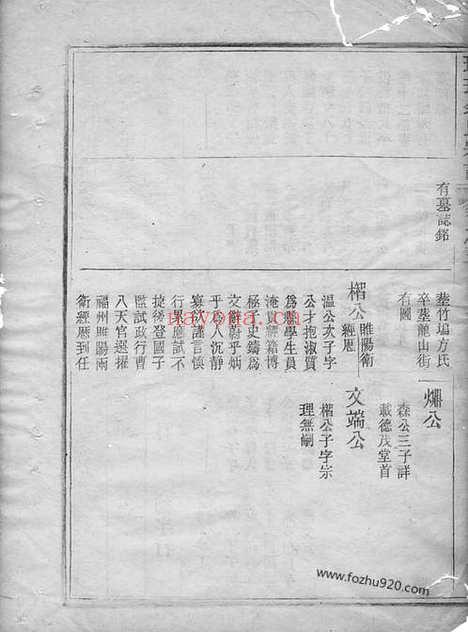 有墓誌銘
葬竹塢方氏
卒葬龍山街
有圖
爌公
森公三子詳
載德茂堂首
楷公
睢陽衛
經歷
文端公
楷公子字宗
理無嗣
溫公次子字
公才抱淑質
為縣學生員
淹貫經籍博
極子史鑄為
文辭蔚乎炳
乎為人沉靜
寡欲謹言慎
行屢應試不
捷後登國子
監試政行曹
八天官選擢
福州睢陽兩
衛經歷到任
nayona.cn
www.fozhu920.com